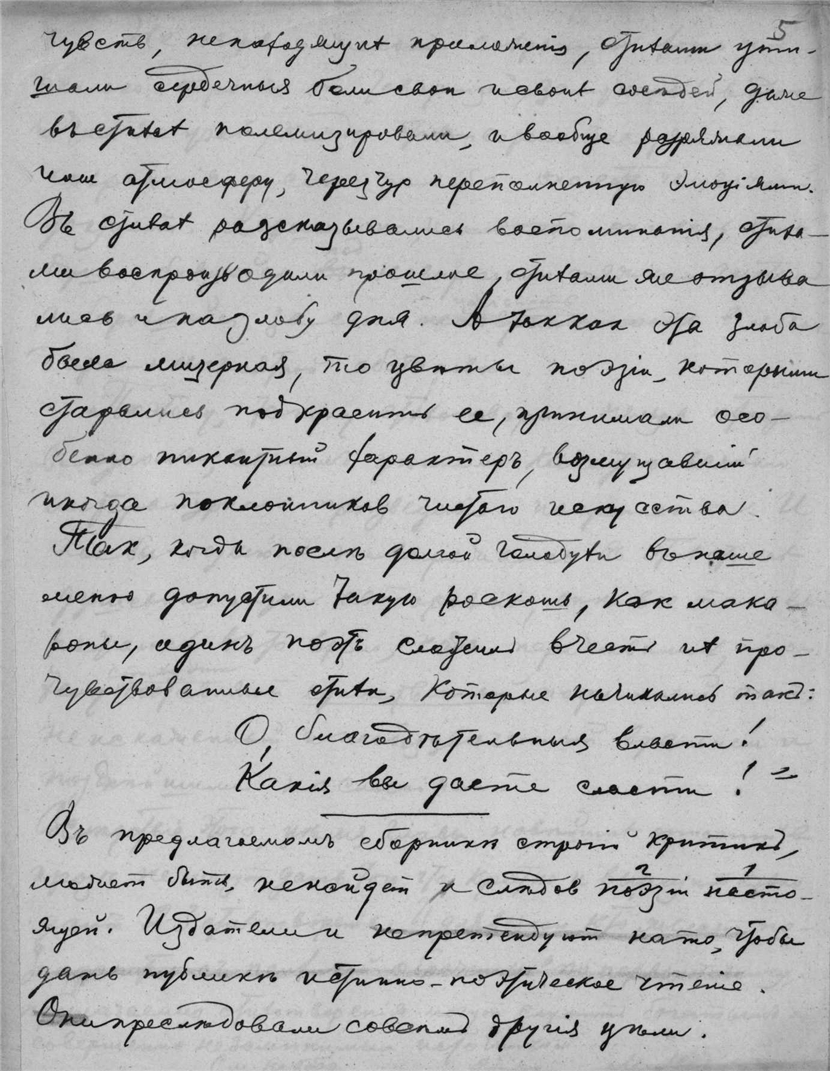 5
чувствъ, ненаходящихъ приложенія, стихами ути-
шали сердечныя боли свои и своих соседей, даже
въ стихахъ полемизировали, и вообще разряжали
нашу атмосферу, черезчур переполненную эмоціями.
Въ стихах разсказывались воспоминанія, стиха-
ми воспроизводили прошлое, стихами же отзыва
лись и на злобу дня. А так как эта злоба
была мизерная, то цвѣты поэзіи, которыми
старались подкрасить ее, принимали осо-
бенно пикантный характеръ, возмущавшій
иногда поклонников чистаго искусства.
Так, когда послѣ долгой голодухи въ наше
меню допустили такую роскошь, как мака-
роны, одинъ поэтъ сложилъ в честь их про-
чувствованные стихи, которые начинались такъ:
О, благодѣтельныя власти!
Какія вы даете сласти!"
Въ предлагаемомъ сборникѣ строгій критикъ,
можетъ быть, ненайдет и слѣдов поэзіи насто-
2 1
ящей. Издатели и непретендуют на то, чтобы
дать публикѣ истинно-поэтическое чтеніе.
Они преслѣдовали совсѣмъ другія цѣли.